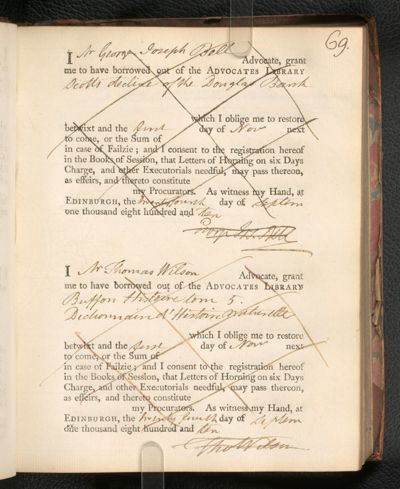 69.
I Mr George Joseph Bell Advocate, grant
me to have borrowed out of the ADVOCATES LIBRARY
Scotts decline of the Douglas Bank
which I oblige me to restore
betwixt and the first day of Nov next
to come, or the Sum of
in case of Failzie; and I consent to the registration hereof
in the Books of Session, that Letters of Horning on six Days
Charge, and other Executorials needful, may pass thereon,
as effeirs, and thereto constitute
my Procurators. As witness my Hand, at
EDINBURGH, the twenty fourth day of Septem
one thousand eight hundred and ten
Geo Jos Bell
I Mr Thomas Wilson Advocate, grant
me to have borrowed out of the ADVOCATES LIBRARY
Buffon Histoire tom 5.
Dictionnaire d'Histoire naturelle
which I oblige me to restore
betwixt and the first day of Nov next
to come, or the Sum of
in case of Failzie; and I consent to the registration hereof
in the Books of Session, that Letters of Horning on six Days
Charge, and other Executorials needful, may pass thereon,
as effeirs, and thereto constitute
my Procurators. As witness my Hand, at
EDINBURGH, the twenty fourth day of Septem
one thousand eight hundred and ten
Tho Wilson